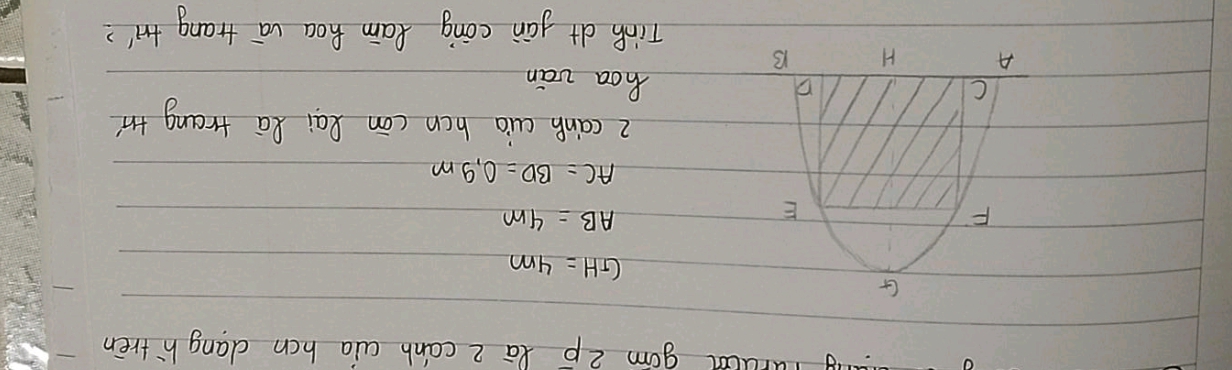 gồm 2 p là 2 cánh cửa hcn dạng h` trên
G
GH = 4m
F E
AB = 4m
AC = BD = 0,9m
2 cánh cửa hcn còn lại là trang trí
C D
hoa văn
A H B
Tính dt gần cổng làm hoa và trang trí?